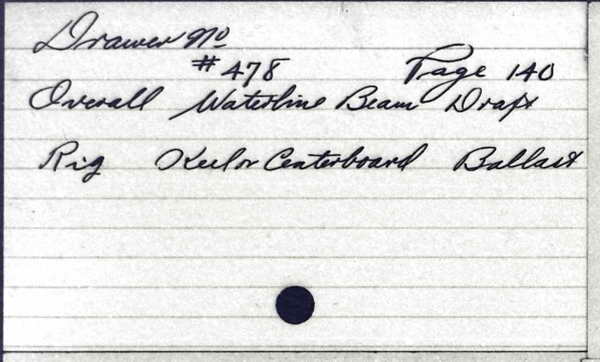 Drawer No
#478 Page 140
Overall Waterline Beam Draft
Rig Keel or Centerboard Ballast